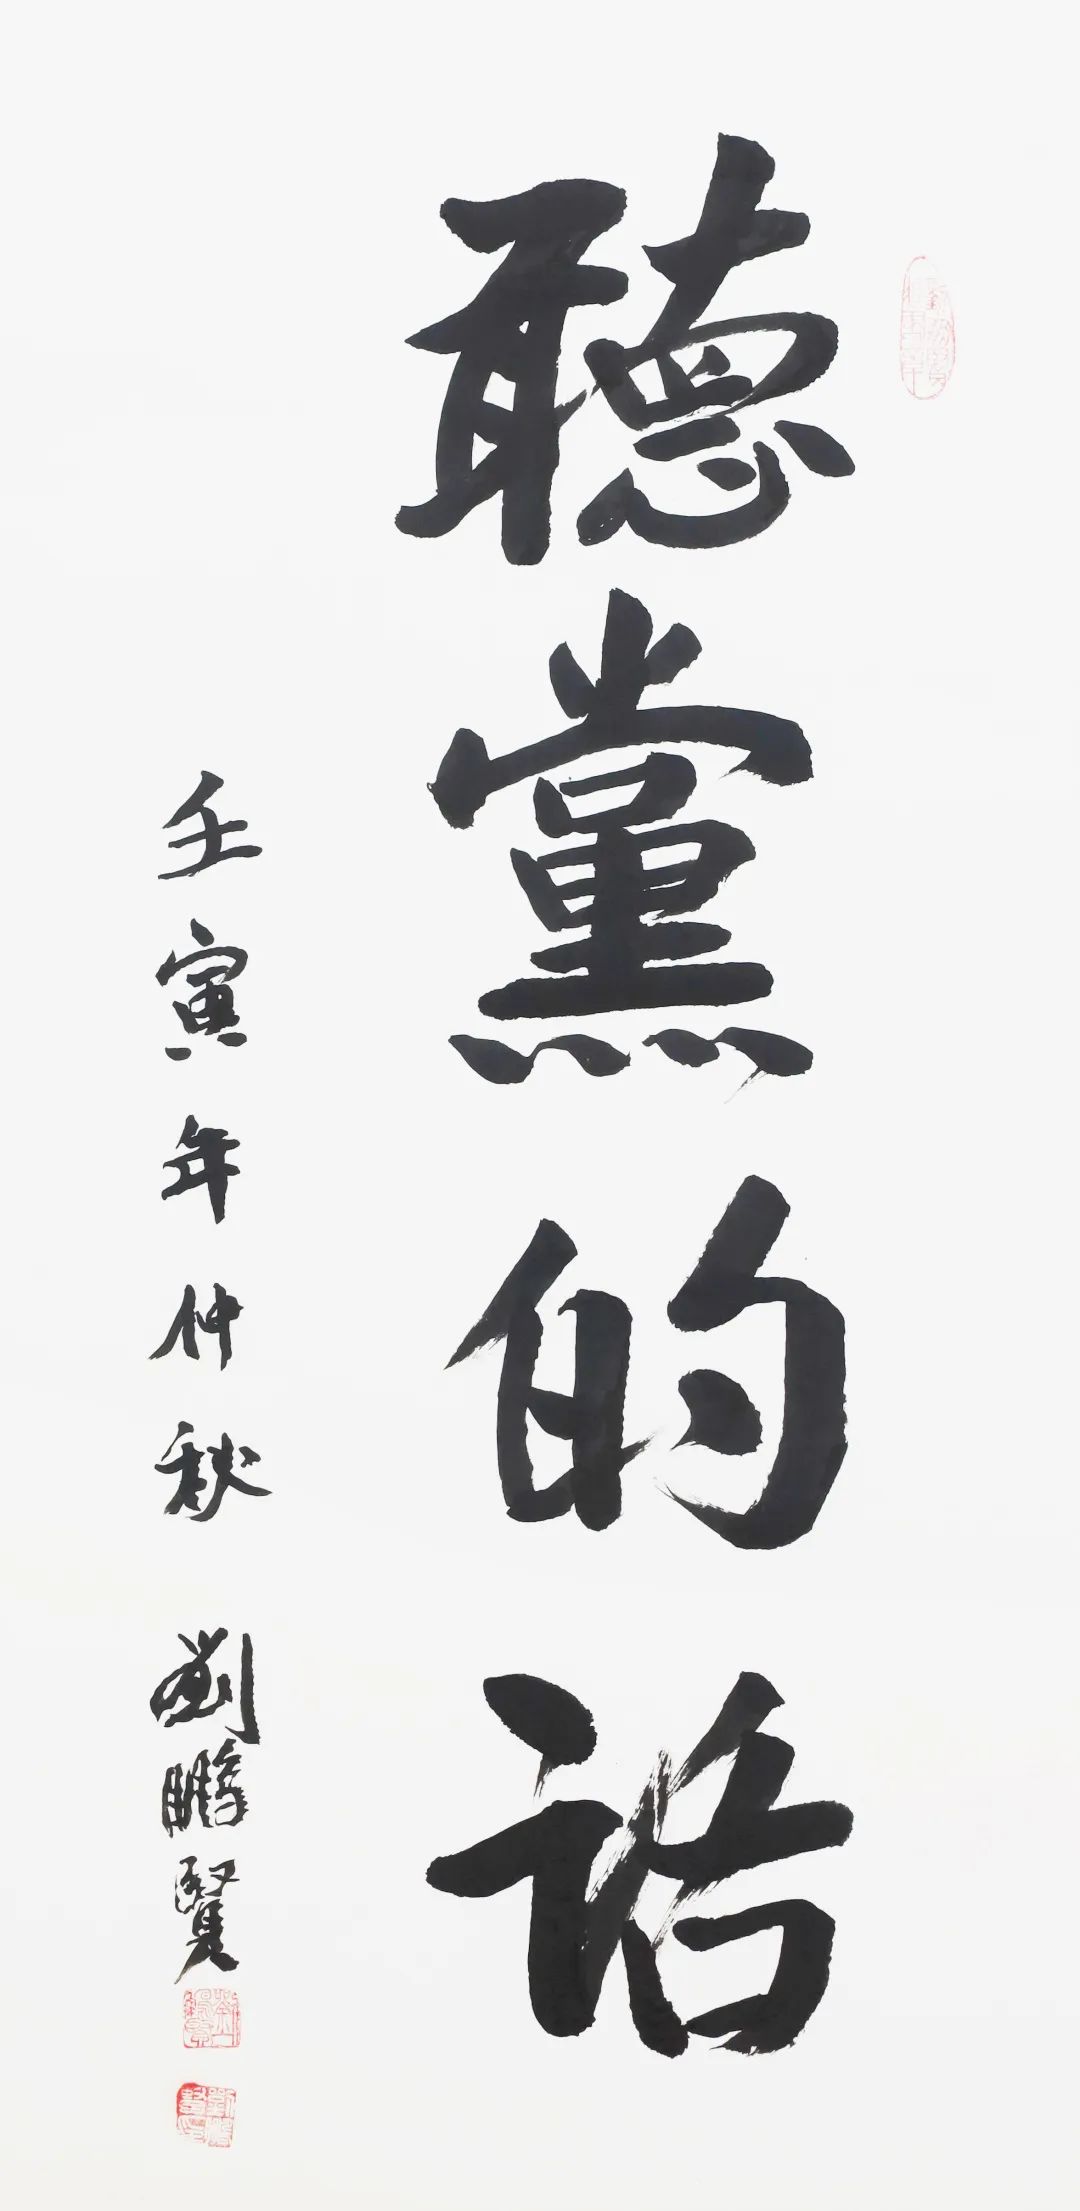 聽黨的話
壬寅年仲秋 劉鵬賢